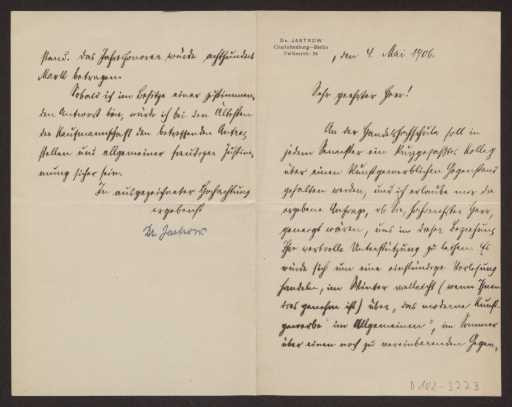 Dr. JASTROW
Charlottenburg—Berlin
, den 4. Mai 1906.
Sehr geehrter Herr!
An der Handelshochschule soll in
jedem Semester ein kurzgefaßtes Kolleg
über einen kunstgewerblichen Gegenstand
gehalten werden, und ich erlaube mir die
ergebene Anfrage, ob Sie, hochgeehrter Herr,
geneigt wären, uns in dieser Beziehung
Ihre wertvolle Unterstützung zu leihen. Es
würde sich um eine einstündige Vorlesung
handeln, im Winter vielleicht (wenn Ihnen
dies genehm ist) über „das moderne Kunst-
gewerbe im Allgemeinen", im Sommer
über einen noch zu vereinbarenden Gegen-
stand. Das Jahreshonorar würde achthundert
Mark betragen.
Sobald ich im Besitze einer zustimmen-
den Antwort bin, würde ich bei den Ältesten
der Kaufmannschaft den betreffenden Antrag
stellen und allgemeiner freudiger Zustim-
mung sicher sein.
In ausgezeichneter Hochachtung
ergebenst
Dr Jastrow
D 102-3223